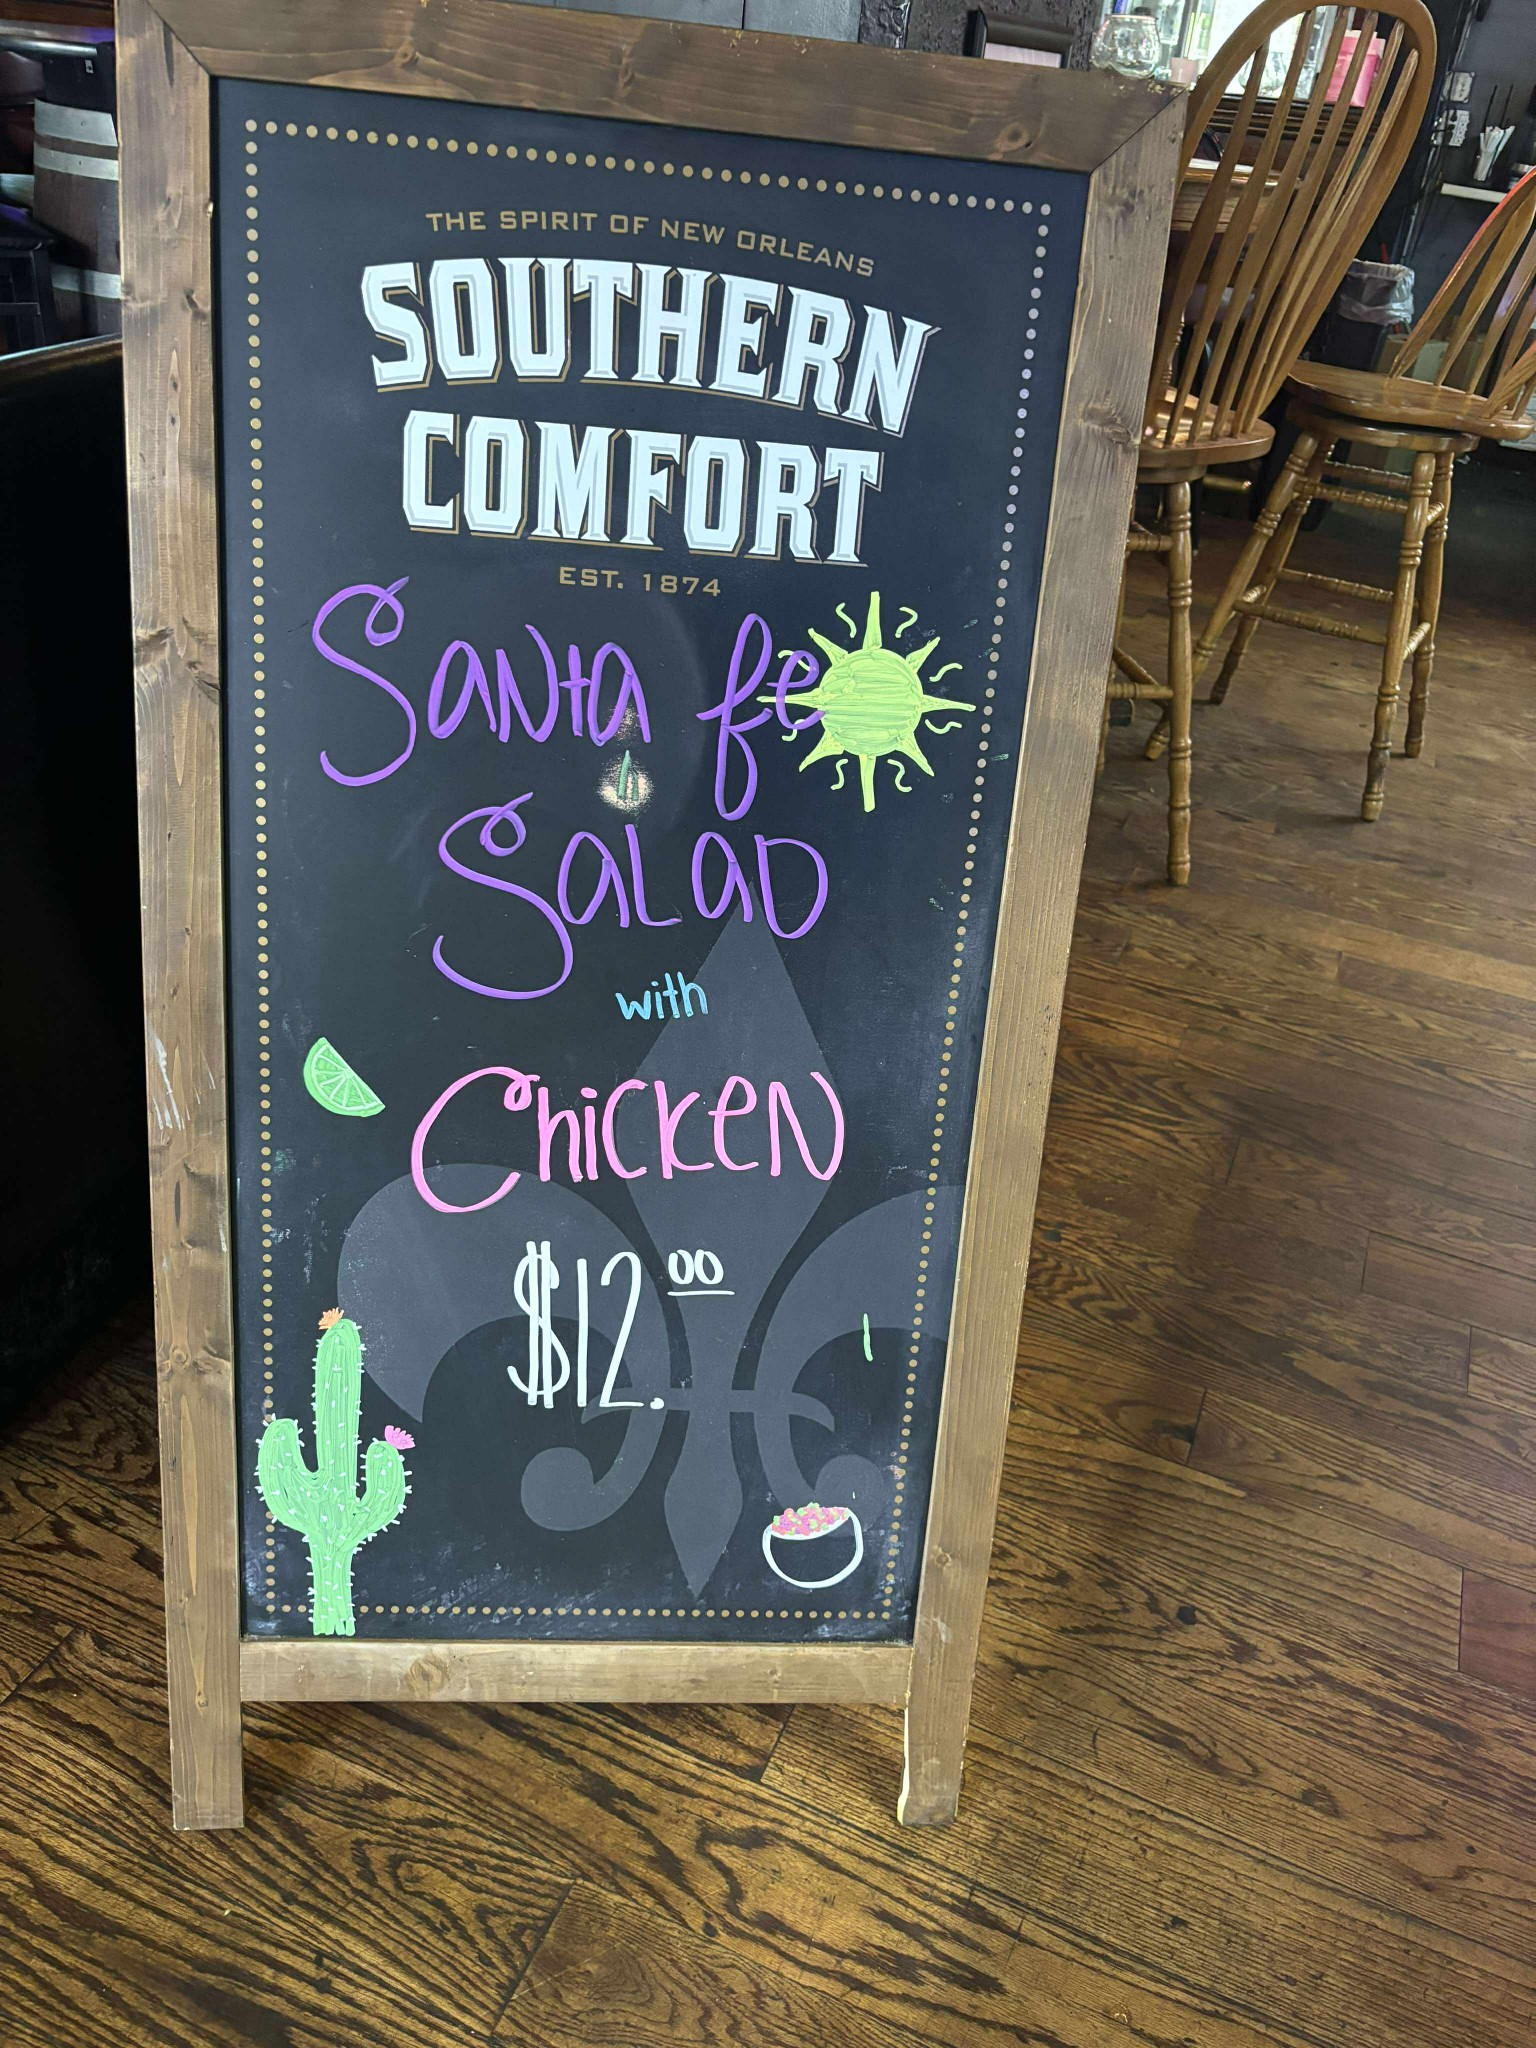 THE SPIRIT OF NEW ORLEANS
SOUTHERN
COMFORT
EST. 1874
Santa fe
Salad
with
Chicken
$12.00